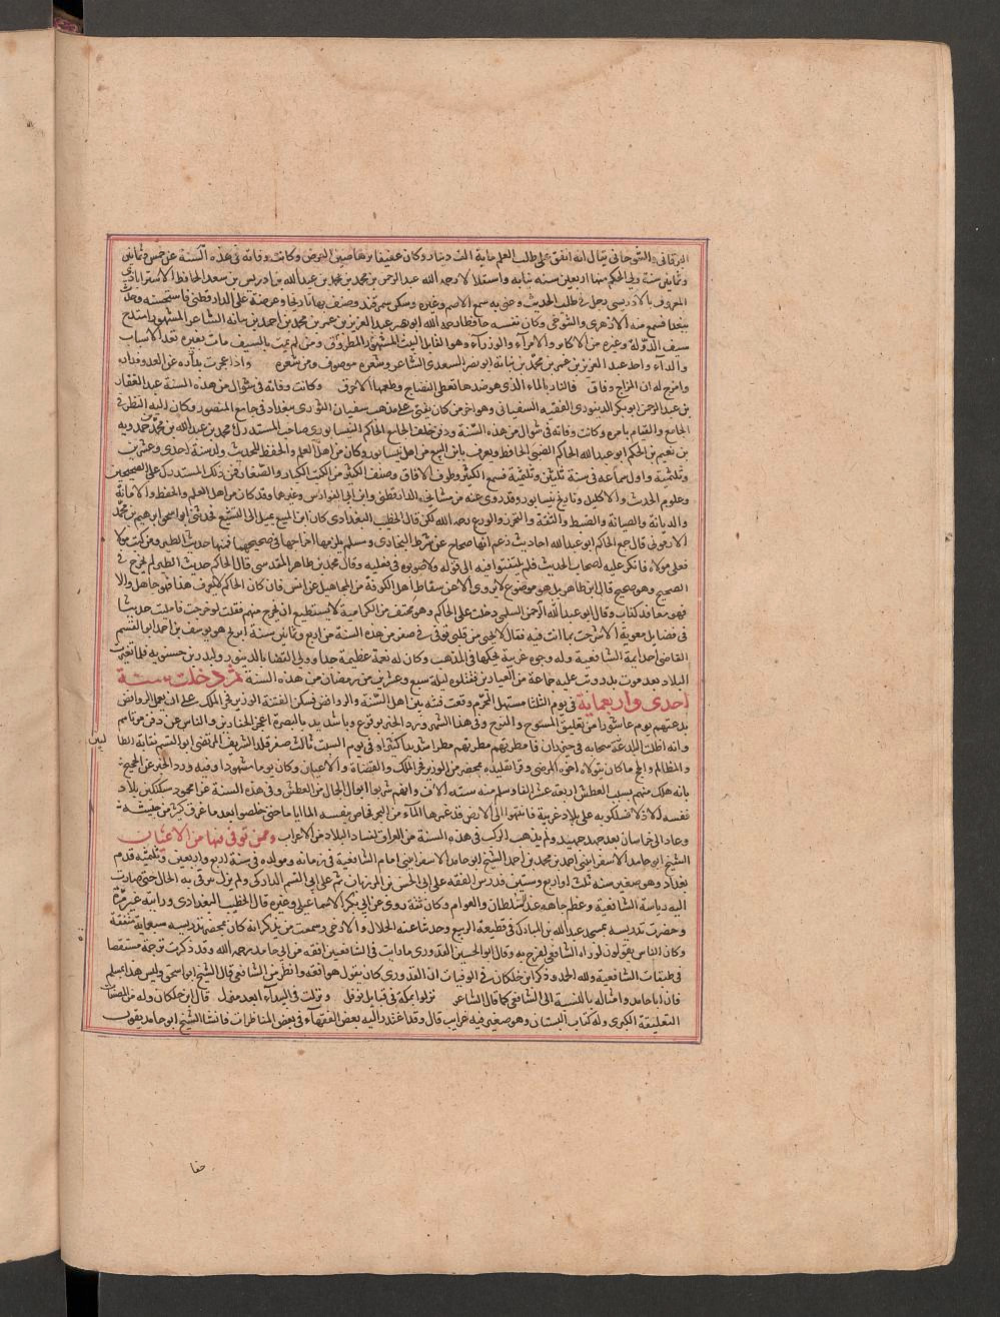 البرقاني والتنوخي يقال انه انفق على طلب العلم ماية الف دينار وكان عفيفا نزها صين العرض وكانت وفاته في هذه السنة عن خمس وثمانين
وثمانين سنة ولي الحكم منها اربعين سنه نيابه واستقلالا رحمه الله عبد الرحمن بن محمد بن محمد بن عبد الله بن ادريس بن سعد الحافظ الاستراباذي
المعروف بالادريسي رحل في طلب الحديث وعني به سمع الاصم وغيره وسكن سمرقند وصنف بها تاريخا وعرضه على الدارقطني فاستحسنه وحدث
ببغداد فسمع منه الازهري والتنوخي وكان ثقه حافظا رحمه الله ابو نصر عبد العزيز بن عمر بن محمد بن احمد بن نباته الشاعر المشهور امتدح
سيف الدولة وغيره من الاكابر والامراء والوزراء وهو القايل البيت المشهور المطروق ومن لم يمت بالسيف مات بغيره تعددت الاسباب
والداء واحد عبد العزيز بن عمر بن محمد بن نباتة ابو نصر السعدي الشاعر وشعره موصوف ومن شعره واذا عجزت عن العدو فداره
وامزج له ان المزاج وفاق فالنار بالماء الذي هو ضدها تعطي النضاج وطبعها الاحراق وكانت وفاته في شوال من هذه السنة عبد الغفار
بن عبد الرحمن ابو بكر الدينوري الفقيه السفياني وهو اخر من كان يفتي على مذهب سفيان الثوري ببغداد في جامع المنصور وكان اليه النظر في
الجامع والقيام بامره وكانت وفاته في شوال من هذه السنة ودفن خلف الجامع الحاكم النيسابوري صاحب المستدرك محمد بن عبد الله بن محمد بن حمدويه
بن نعيم بن الحكم ابو عبد الله الحاكم الضبي الحافظ ويعرف بابن البيع من اهل نيسابور وكان من اهل العلم والحفظ للحديث ولد سنة احدى وعشرين
وثلثمية واول سماعه في سنة ثلثين وثلثمية فسمع الكثير وطوف الافاق وصنف الكثير من الكتب الكبار والصغار فمن ذلك المستدرك على الصحيحين
وعلوم الحديث والاكليل وتاريخ نيسابور وقد روى عنه من مشايخه الدارقطني وابن ابي الفوارس وغيرهما وقد كان من اهل العلم والحفظ والامانة
والديانة والصيانة والضبط والثقة والتحرز والورع رحمه الله لكن قال الخطيب البغدادي كان ابن البيع يميل الى التشيع فحدثني ابو اسحق ابراهيم بن محمد
الارموي قال جمع الحاكم ابو عبد الله احاديث زعم انها صحاح على شرط البخاري ومسلم يلزمهما اخراجها في صحيحيهما فمنها حديث الطير ومن كنت مولاه
فعلي مولاه فانكر عليه اصحاب الحديث فلم يلتفتوا فيه الى قوله ولا صوبوه في فعله وقال محمد بن طاهر المقدسي قال الحاكم حديث الطير لم يخرج في
الصحيح وهو صحيح قال ابن طاهر بل هو موضوع لا يروى الا عن سقاط اهل الكوفة من المجاهيل عن انس فان كان الحاكم لا يعرف هذا فهو جاهل والا
فهو معاند كذاب وقال ابو عبد الرحمن السلمي دخلت على الحاكم وهو مختف من الكرامية لا يستطيع ان يخرج منهم فقلت لو خرجت فامليت حديثا
في فضايل معوية لاسترحت مما انت فيه فقال لا يجي من قلبي توفي في صفر من هذه السنة عن اربع وثمانين سنة ابن كج هو يوسف بن احمد ابو القسم
القاضي احد ايمة الشافعية وله وجوه غريبة يحكيها في المذهب وكان له نعمة عظيمة جدا وولي القضا بالدينور لبدر بن حسنويه فلما تغيرت
البلاد بعد موت بدر وثبت عليه جماعة من العيارين فقتلوه ليلة سبع وعشرين من رمضان من هذه السنة ثم دخلت سنة
احدى واربعماية في يوم الثلثا مستهل المحرم وقعت فتنة بين اهل السنة والروافض فسكن الفتنة الوزير فخر الملك على ان يعمل الروافض
بدعتهم يوم عاشورا من تعليق المسوح والنوح وفي هذا الشهر ورد الخبر بوقوع وبا شديد بالبصرة اعجز الحفارين والناس عن دفن موتاهم
وانه اظلت البلد سحابه في حزيران فامطرتهم مطرا شديدا كثيرا وفي يوم السبت ثالث صفر قلد الشريف المرتضى ابو القسم نقابة الطا لبين
والمظالم والحج ما كان يتولاه اخوه الرضي وقرا تقليده بمحضر من الوزير فخر الملك والقضاة والاعيان وكان يوما مشهودا وفيه ورد الخبر عن الحجيج
بانه هلك منهم بسبب العطش اربعة عشر الفا وسلم منهم ستة الاف وانهم شربوا ابوال الجمال من العطش وفي هذه السنة غزا محمود بن سبكتكين بلاد
لاد لا فسلكوا به على بلاد غريبة فانتهوا الى ارض قد غمرها الماء من البحر فخاض بنفسه الماء اياما حتى خلصوا بعد ما غرق كثير من جيشه
وعاد الى خراسان بعد جهد جهيد ولم يذهب الركب في هذه السنة من العراق لفساد البلاد من الاعراب وممن توفي فيها من الاعيان
الشيخ ابو حامد الاسفرايني احمد بن محمد بن احمد الشيخ ابو حامد الاسفرايني امام الشافعية في زمانه ومولده في سنة اربع واربعين وثلثمية قدم
بغداد وهو صغير سنه ثلث او اربع وستين فدرس الفقه على ابي الحسن بن المرزبان ثم على ابي القسم الداركي ولم يزل يترقى به الحال حتى صارت
اليه رياسة الشافعية وعظم جاهه عند السلطان والعوام وكان ثقة روى عن ابي بكر الاسماعيلي وغيره قال الخطيب البغدادي ورايته غير مرة
وحضرت تدريسه بمسجد عبد الله بن المبارك في قطيعة الربيع وحدثنا عنه الخلال والازجي وسمعت من يذكر انه كان يحضر تدريسه سبعماية متفقه
وكان الناس يقولون لو راه الشافعي لفرح به وقال ابو الحسين القدوري ما رايت في الشافعيين افقه من ابي حامد رحمه الله وقد ذكرت ترجمته مستقصا
في طبقات الشافعية ولله الحمد وذكر ابن خلكان في الوفيات ان القدوري كان يقول هو افقه وانظر من الشافعي قال الشيخ ابو اسحق وليس هذا بمسلم
فان ابا حامد وامثاله بالنسبة الى الشافعي كما قال الشاعر نزلوا بمكة في قبايل نوفل ونزلت في البيداء ابعد منزل قال ابن خلكان وله من المصنفات
التعليقة الكبرى وله كتاب البستان وهو صغير فيه غرايب قال وقد اعترض اليه بعض الفقهاء في بعض المناظرات فانشا الشيخ ابو حامد يقول
جفا